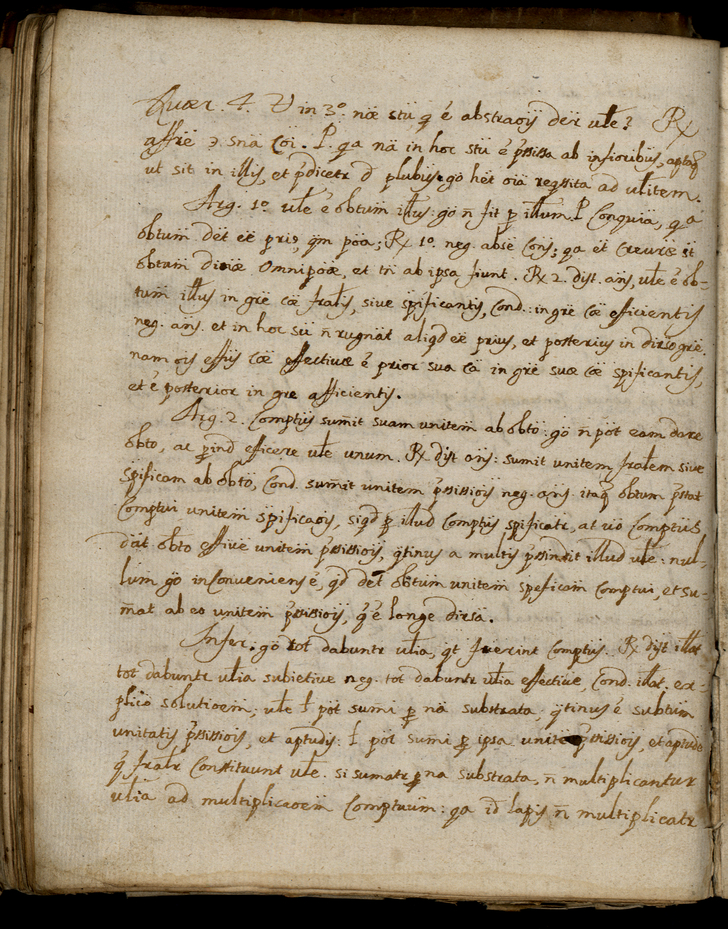 Quær. 4. V in 3º. nāē stū q̄ ē abstraoīj der ułe? Rx
affrē ɔ snā Coī. P. qa nā in hoc stū ē p̄ssissa ab inferioribīj, aptaq̄
ut sit in illis, et p̄dicetr d plubīj: gō hēt oīa reqssita ad ulitem.
Arg. 1º ułe ē obtūm illīus: gō n̄ fit p illum. P Conquīa, qa
obtūm dēt eē priɔ, qm pōa; Rx 1º. neg. absē Conj; qa ēt Creuræ st
obtūm divæ Omnipōæ, et tn̄ ab ipsa fiunt. Rx 2. dist. anj, ułe ē ob-
tūm illīus in grē cæ frałis, sive spificantis, Cond: in grē cæ efficientis
neg. anj. et in hoc sū n̄ rugnāt aliqd eē prius, et posterius in dirsogrē.
nam oīs effūs cæ effectivæ ē prior sua cā in grē suæ cæ spificantis,
et ē posterior in gre afficientis.
Arg. 2. Comptūs sumīt suam unitem ab obto: gō n̄ pōt eam dare
obto, ac p̄ind efficere ułe unum. Rx dist anj: sumit unitem frałem sive
spificam ab obtō, Cond. sumit unitem p̄ssissioīs neg. anj. itaq̄ obtum p̄stat
Comptui unitem spificaoīj, siqd p̄ illud Comptūs spificatr, at vēo Comptūs
dāt obto effivē unitem p̄ssissioīj, q̄tinus a multis p̄ssindit illud ułe: nul-
lum gō inConveniens ē, qd dēt obtum unitem speficam comptui, et su-
māt ab eo unitem p̄ssissioīj, q̄ ē longe dirsa.
Infer. gō tot dabuntr ulia, qt fuerint Comptūs. Rx dist illat
tot dabuntr ulia subietive neg: tot dabuntr ulia effective, Cond. illat. ex-
plicō solutioem; ułe ł pōt sumi p̄ nā substrata, q̄tinus ē subtūm
unitatis p̄ssissioīs, et aptudīs: ł pōt sumi p̄ ipsa unite p̄ssissioīs, et aptude
q̄ frałr Constituunt ułe. si sumatr p̄ na substrata, n̄ multiplicantur
ulia ad multiplicaoem Comptuum: qa id lapis n̄ multiplicatr